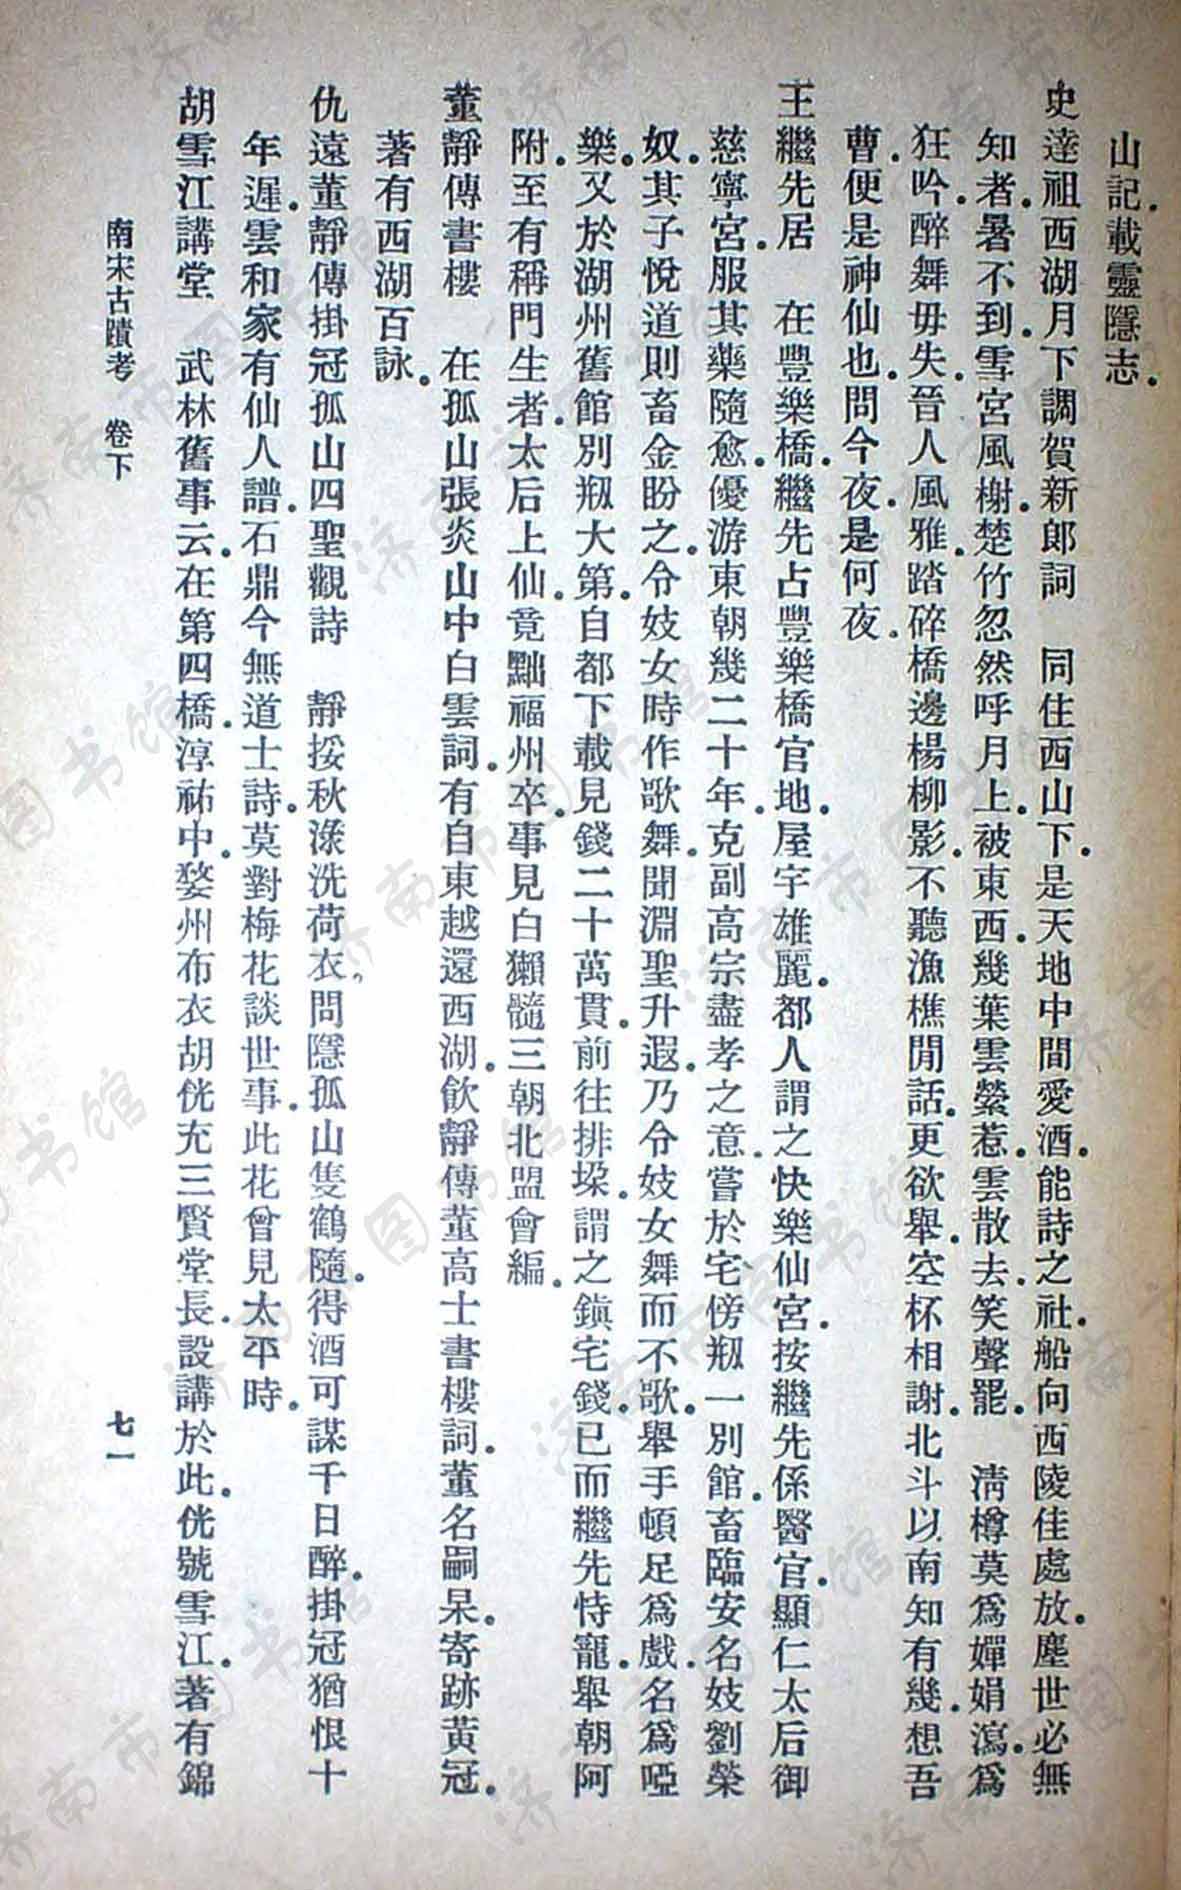 山記。載靈隱志。
史達祖西湖月下調賀新郎詞　同住西山下。是天地中間愛酒。能詩之社。船向西陵佳處放。塵世必無
知者。暑不到。雪宮風榭。楚竹忽然呼月上。被東西。幾葉雲縈惹。雲散去。笑聲罷。　清樽莫爲嬋娟瀉。爲
狂吟。醉舞毋失。晉人風雅。踏碎橋邊楊柳影。不聽漁樵閒話。更欲舉。空杯相謝。北斗以南知有幾。想吾
曹。便是神仙也。問今夜。是何夜。
王繼先居　在豐樂橋。繼先占豐樂橋官地。屋宇雄麗。都人謂之快樂仙宮。按繼先係醫官。顯仁太后御
慈寧宮。服其藥隨愈。優游東朝幾二十年。克副高宗盡孝之意。嘗於宅傍剏一別館。畜臨安名妓劉榮
奴。其子悅道則畜金盼之。令妓女時作歌舞。聞淵聖升遐。乃令妓女舞而不歌。舉手頓足爲戲。名爲啞
樂。又於湖州舊館別剏大第。自都下載見錢二十萬貫。前往排垜。謂之鎮宅錢。已而繼先恃寵。舉朝阿
附。至有稱門生者。太后上仙。竟黜福州卒。事見白獺髓三朝北盟會編。
董靜傳書樓　在孤山張炎山中白雲詞。有自東越還西湖。飲靜傳董高士書樓詞。董名嗣杲。寄跡黃冠。
著有西湖百詠。
仇遠董靜傳掛冠孤山四聖觀詩　靜挼秋淥洗荷衣。問隱孤山隻鶴隨。得酒可謀千日醉。掛冠猶恨十
年遲。雲和家有仙人譜。石鼎今無道士詩。莫對梅花談世事。此花曾見太平時。
胡雪江講堂　武林舊事云。在第四橋。淳祐中。婺州布衣胡侊充三賢堂長。設講於此。侊號雪江。著有錦
南宋古蹟考　卷下　七一